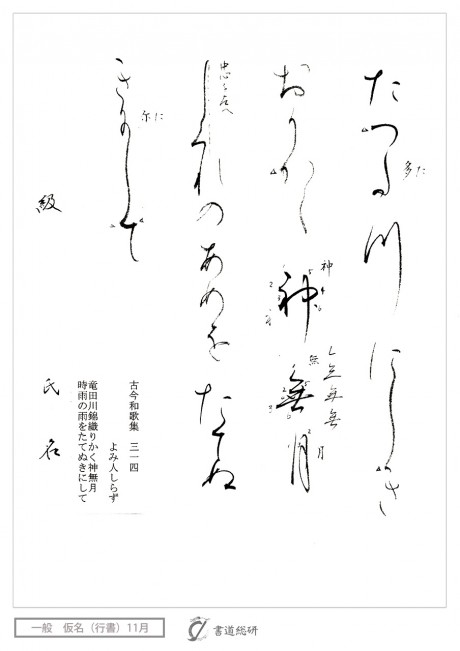 たつ多川にしき
多 た
おりかく神無月
神
無
月
しぐれのあめをたてぬ
き尓して
尓 に
古今和歌集 三一四
よみ人しらず
竜田川錦織りかく神無月
時雨の雨をたてぬきにして
級 氏名
一般 仮名（行書）11月
書道総研